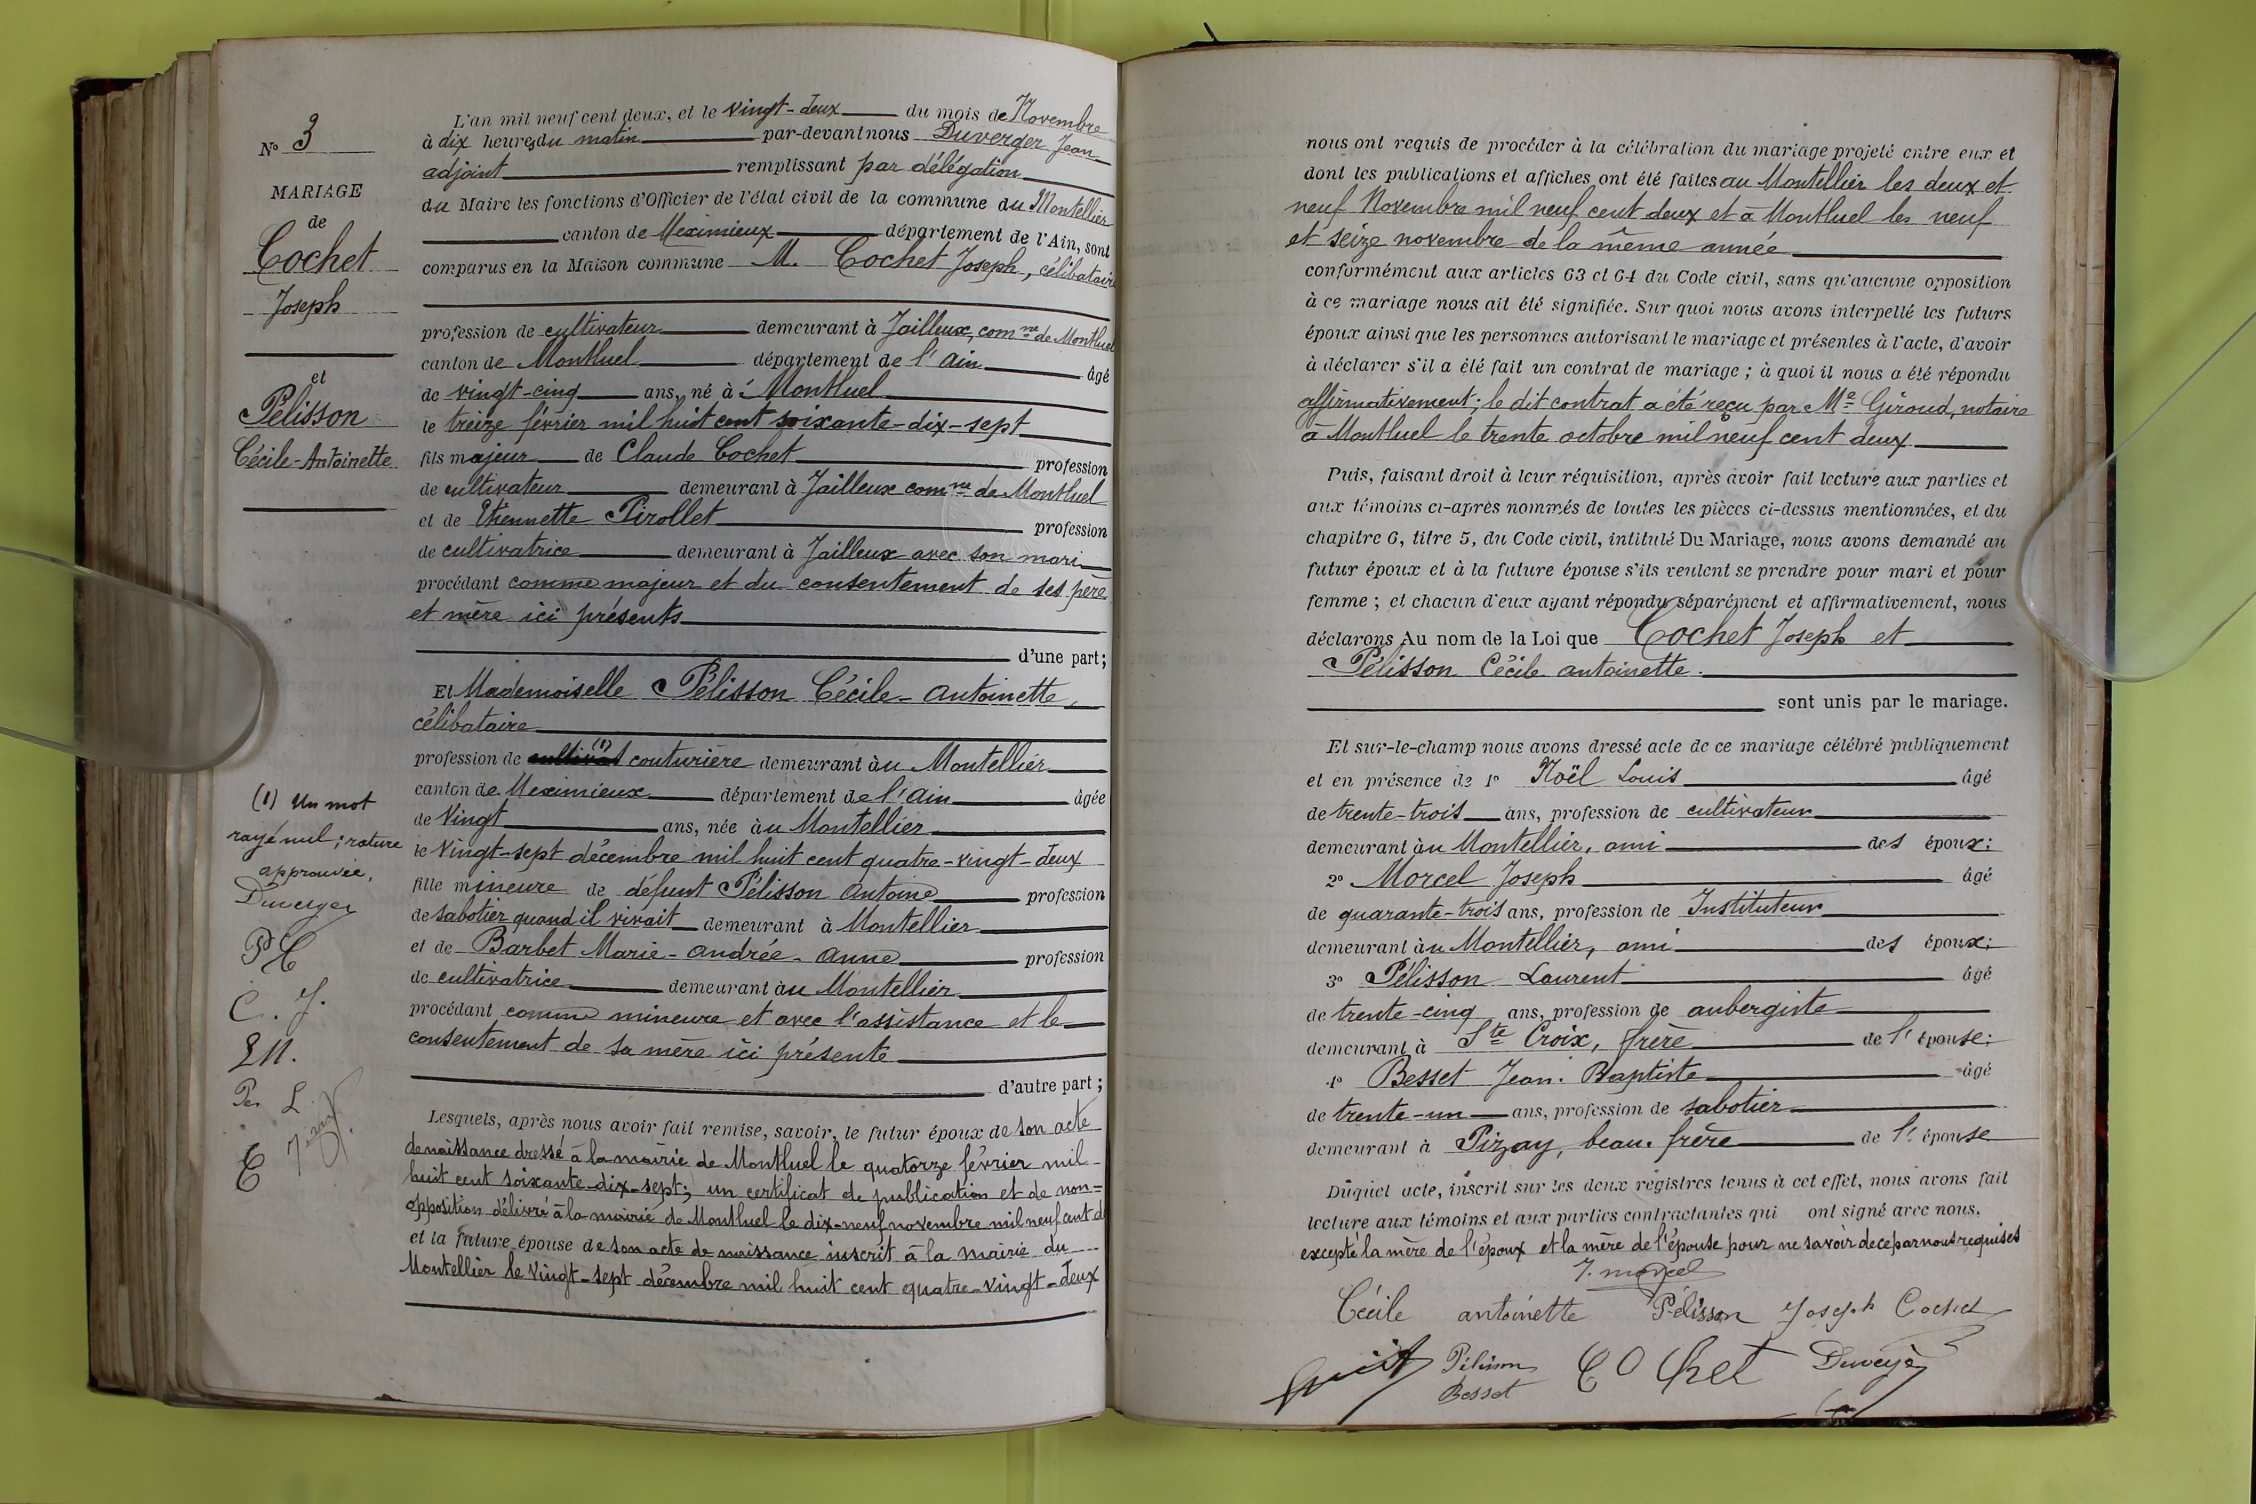 N° 3
MARIAGE
de
Cochet
Joseph
et
Pélisson
Cécile-Antoinette
(1) Un mot
rayé nul; rature
approuvée,
Duverger
P C
C. J.
L N.
P L
C
L'an mil neuf cent deux, et le vingt-deux du mois de Novembre
à dix heures du matin par-devant nous Duverger Jean
adjoint remplissant par délégation
du Maire les fonctions d'Officier de l'état civil de la commune du Montellier
canton de Meximieux département de l'Ain, sont
comparus en la Maison commune M. Cochet Joseph, célibataire
profession de cultivateur demeurant à Jailleux, comne de Montluel
canton de Montluel département de l'Ain âgé
de vingt-cinq ans, né à Montluel
le treize février mil huit cent soixante-dix-sept
fils majeur de Claude Cochet profession
de cultivateur demeurant à Jailleux comne de Montluel
et de Etiennette Pirollet profession
de cultivatrice demeurant à Jailleux avec son mari
procédant comme majeur et du consentement de ses père
et mère ici présents
d'une part;
Et Mademoiselle Pélisson Cécile-Antoinette,
célibataire
profession de (1) couturière demeurant àu Montellier
canton de Meximieux département de l'Ain âgée
de vingt ans, née àu Montellier
le vingt-sept décembre mil huit cent quatre-vingt-deux
fille mineure de défunt Pélisson Antoine profession
de sabotier quand il vivait demeurant à Montellier
et de Barbet Marie-Andrée-Anne profession
de cultivatrice demeurant àu Montellier
procédant comme mineure et avec l'assistance et le
consentement de sa mère ici présente
d'autre part;
Lesquels, après nous avoir fait remise, savoir, le futur époux de son acte
de naissance dressé à la mairie de Montluel le quatorze février mil
huit cent soixante-dix-sept; un certificat de publication et de non-
opposition délivré à la mairie de Montluel le dix-neuf novembre mil neuf cent d
et la future épouse de son acte de naissance inscrit à la mairie du
Montellier le vingt-sept décembre mil huit cent quatre-vingt-deux
nous ont requis de procéder à la célébration du mariage projeté entre eux et
dont les publications et affiches ont été faites au Montellier les deux et
neuf Novembre mil neuf cent deux et à Montluel les neuf
et seize novembre de la même année
conformément aux articles 63 et 64 du Code civil, sans qu'aucune opposition
à ce mariage nous ait été signifiée. Sur quoi nous avons interpellé les futurs
époux ainsi que les personnes autorisant le mariage et présentes à l'acte, d'avoir
à déclarer s'il a été fait un contrat de mariage; à quoi il nous a été répondu
affirmativement; le dit contrat a été reçu par Me Giroud, notaire
à Montluel le trente octobre mil neuf cent deux
Puis, faisant droit à leur réquisition, après avoir fait lecture aux parties et
aux témoins ci-après nommés de toutes les pièces ci-dessus mentionnées, et du
chapitre 6, titre 5, du Code civil, intitulé Du Mariage, nous avons demandé au
futur époux et à la future épouse s'ils veulent se prendre pour mari et pour
femme; et chacun d'eux ayant répondu séparément et affirmativement, nous
déclarons Au nom de la Loi que Cochet Joseph et
Pélisson Cécile Antoinette.
sont unis par le mariage.
Et sur-le-champ nous avons dressé acte de ce mariage célébré publiquement
et en présence de 1° Noël Louis âgé
de trente-trois ans, profession de cultivateur
demeurant àu Montellier, ami des époux;
2° Morcel Joseph âgé
de quarante-trois ans, profession de Instituteur
demeurant àu Montellier, ami des époux;
3° Pélisson Laurent âgé
de trente-cinq ans, profession de aubergiste
demeurant à Ste Croix, frère de l'épouse;
4° Besset Jean-Baptiste âgé
de trente-un ans, profession de sabotier
demeurant à Pizay, beau-frère de l'épouse
Duquel acte, inscrit sur les deux registres tenus à cet effet, nous avons fait
lecture aux témoins et aux parties contractantes qui ont signé avec nous,
excepté la mère de l'époux et la mère de l'épouse pour ne savoir de ce par nous requises
J. morcel
Cécile antoinette Pélisson Joseph Cochet
Pélisson Cochet Duverger
Besset